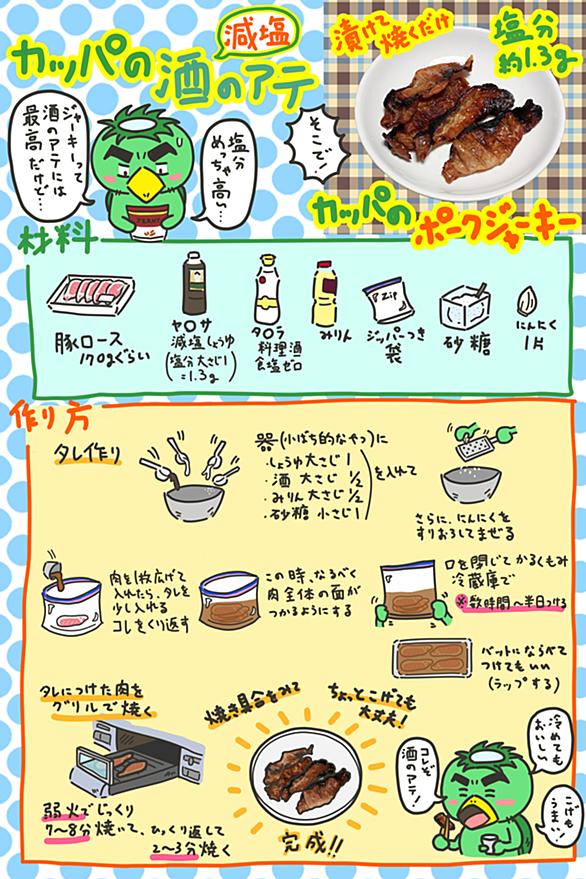 減塩
カッパの酒のアテ
ジャーキーって
酒のアテには
最高だけど…
塩分
めっちゃ高い…
そこで!
漬けて
焼くだけ
塩分
約1.3g
カッパの
ポークジャーキー
材料
豚ロース
170gぐらい
ヤ○サ
減塩しょうゆ
(塩分大さじ1
=1.3g)
タ○ラ
料理酒
食塩ゼロ
みりん
Zip
ジッパーつき
袋
砂糖
にんにく
1片
作り方
タレ作り
器(小ばち的なやつ)に
・しょうゆ大さじ1
・酒 大さじ 1/2
・みりん大さじ1/2
・砂糖 小さじ1
を入れて
さらに、にんにくを
すりおろしてまぜる
肉を1枚広げて
入れたら、タレを
少し入れる
コレをくり返す
この時、なるべく
肉全体の面が
つかるようにする
口を閉じてかるくもみ
冷蔵庫で
※数時間〜半日つける
バットにならべて
つけてもいい
(ラップする)
タレにつけた肉を
グリルで焼く
弱火でじっくり
7〜8分焼いて、ひっくり返して
2〜3分焼く
焼き具合をみて
ちょっとこげても
大丈夫!
完成!!
冷めても
おいしい
コレぞ
酒のアテ!
こげも
うまい!